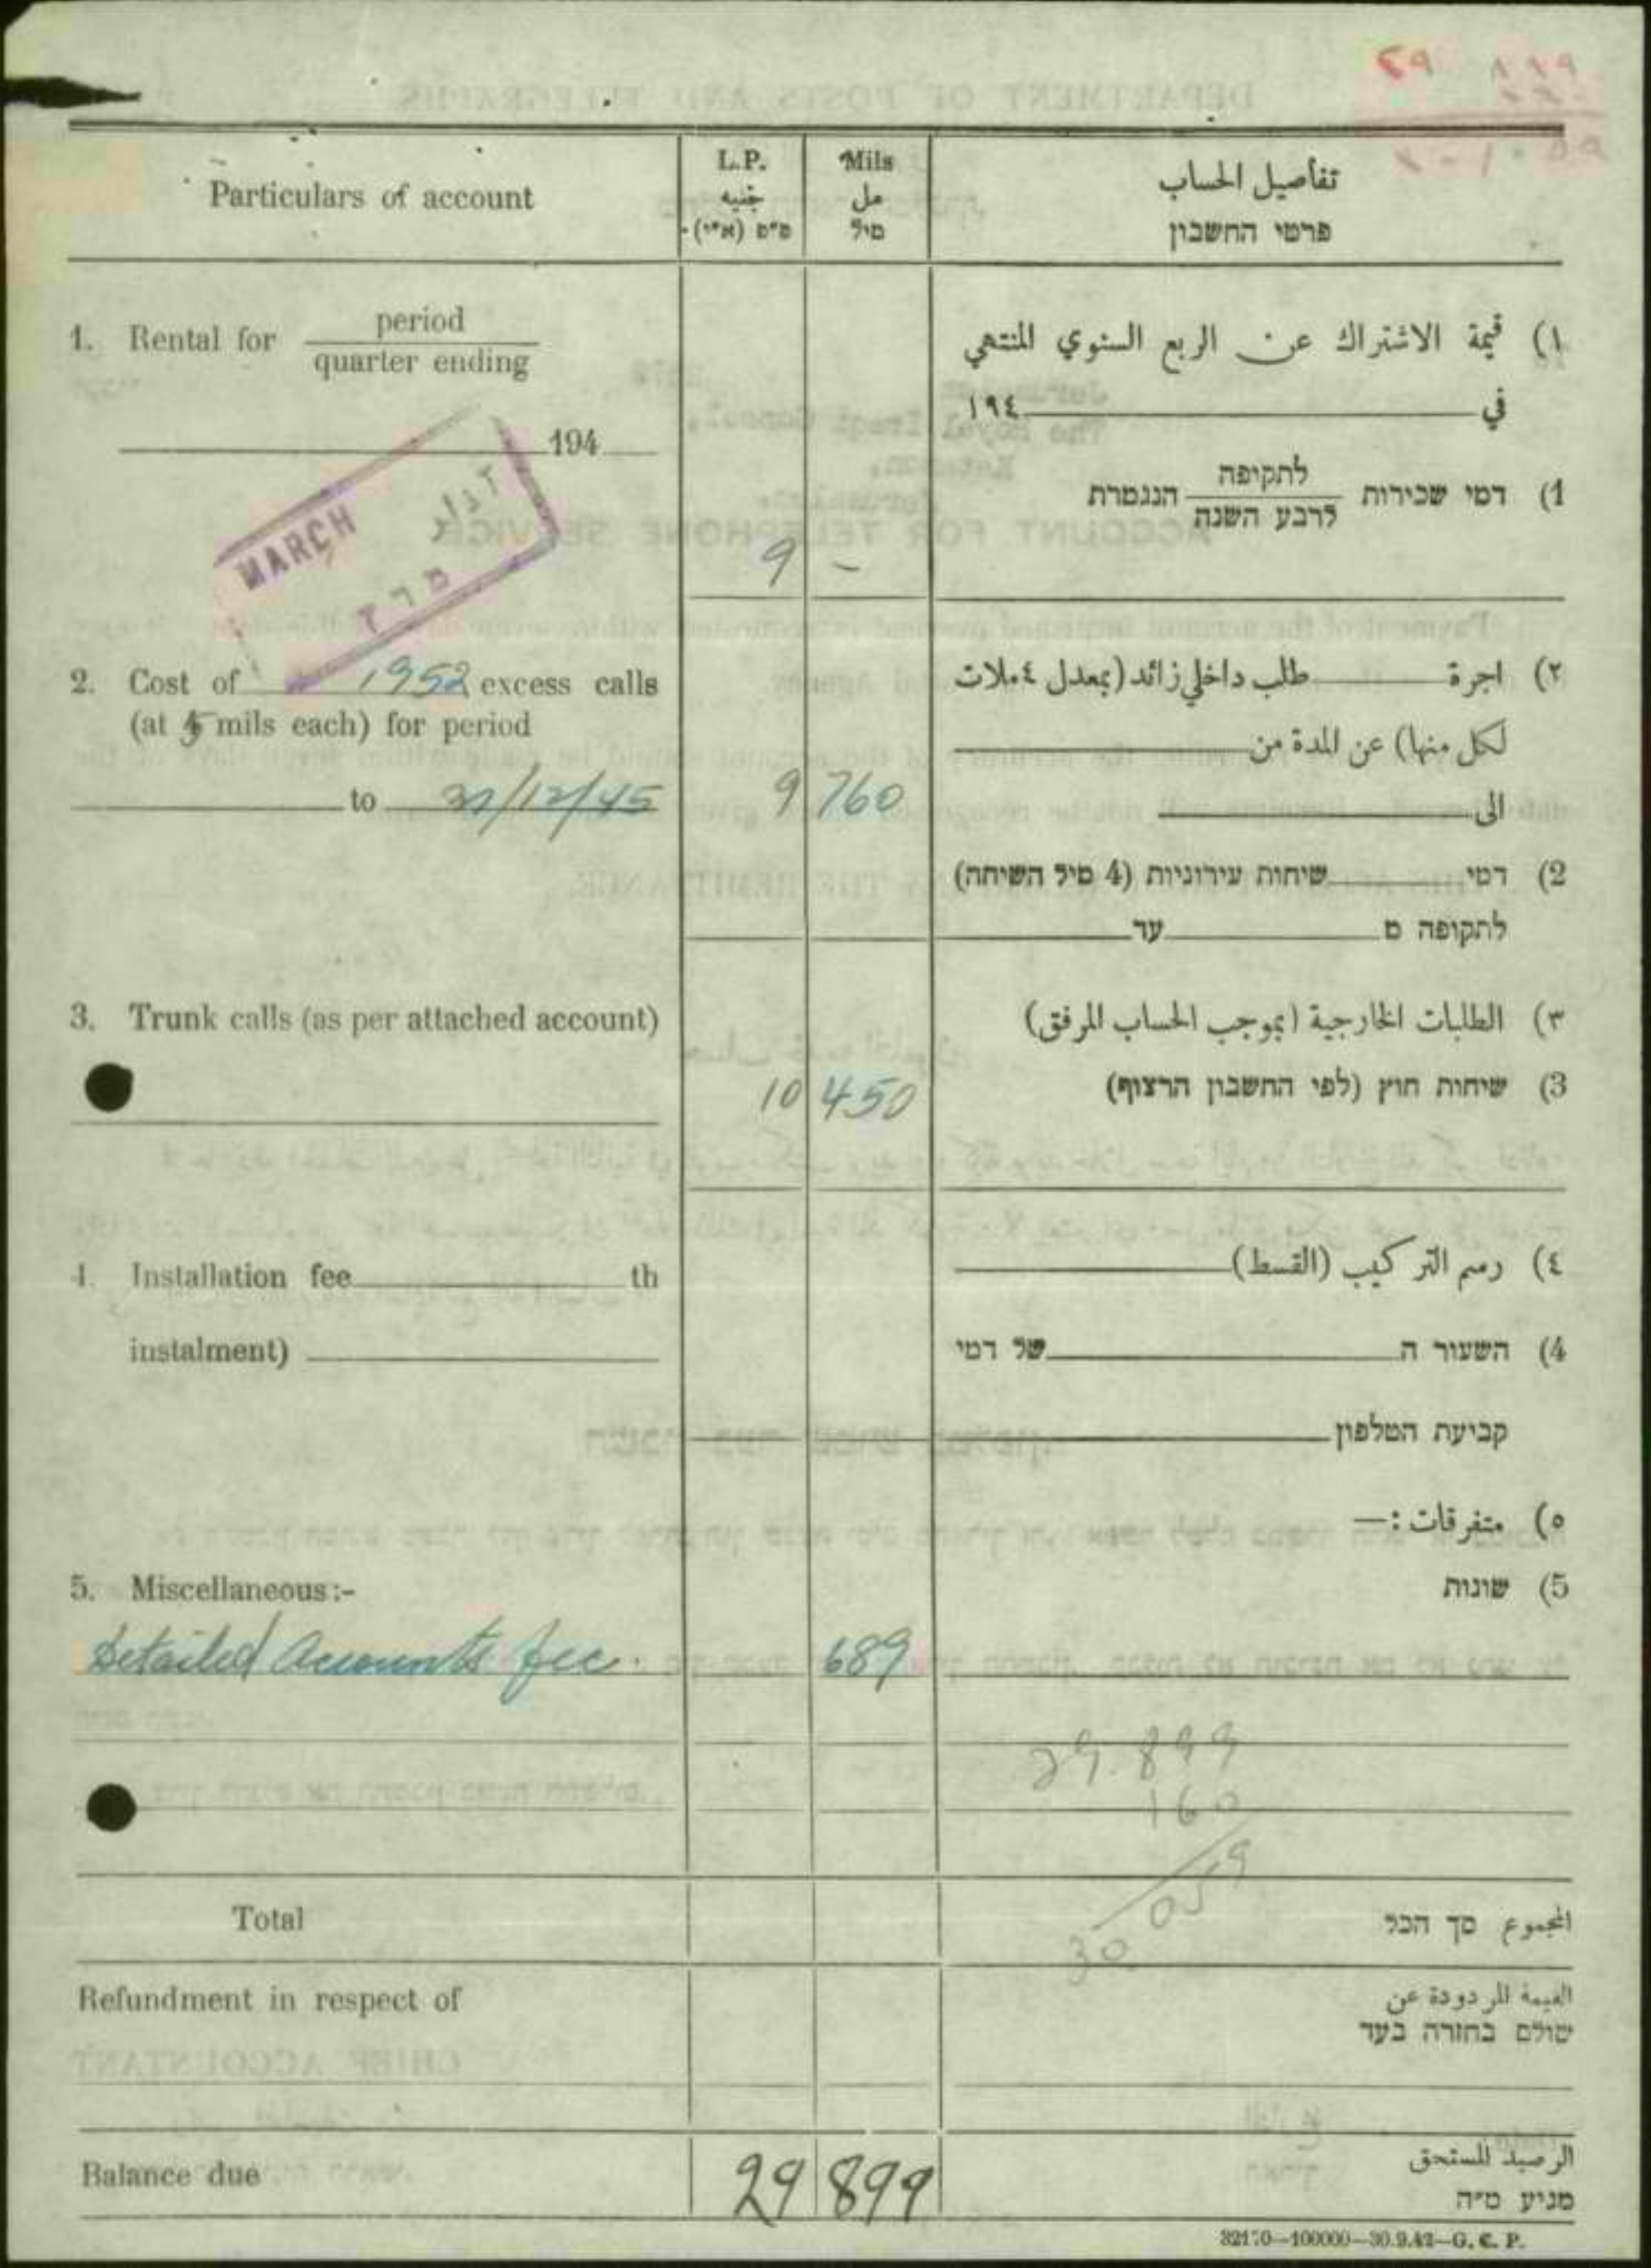 Particulars of account
L.P.
جنيه
פ״פ (א״י)
Mils
مل
מיל
تفاصيل الحساب
פרטי החשבון
1. Rental for period
quarter ending
194
MARCH
מרץ
9 –
١) قيمة الاشتراك عن الربع السنوي المنتهي
في ١٩٤
1) דמי שכירות לתקיפה הנגמרת
לרבע השנה
2. Cost of 1952 excess calls
(at 5 mils each) for period
to 31/12/45
9 760
٢) اجرة طلب داخلي زائد (بمعدل ٤ ملات
لكل منها) عن المدة من
الى
2) דמי שיחות עירוניות (4 מיל השיחה)
לתקופה מ עד
3. Trunk calls (as per attached account)
10 450
٣) الطلبات الخارجية (بموجب الحساب المرفق)
3) שיחות חוץ (לפי החשבון הרצוף)
4. Installation fee th
instalment)
٤) رسم التركيب (القسط)
4) השעור ה של דמי
קביעת הטלפון
٥) متفرقات :—
5. Miscellaneous :-
5) שונות
Detailed Accounts fee. 689
29.899
160
30 059
Total
المجموع סך הכל
Refundment in respect of
القيمة المردودة عن
שולם בחזרה בעד
Balance due
29 899
الرصيد المستحق
מגיע מ״ה
32170—100000—30.9.42—G. C. P.